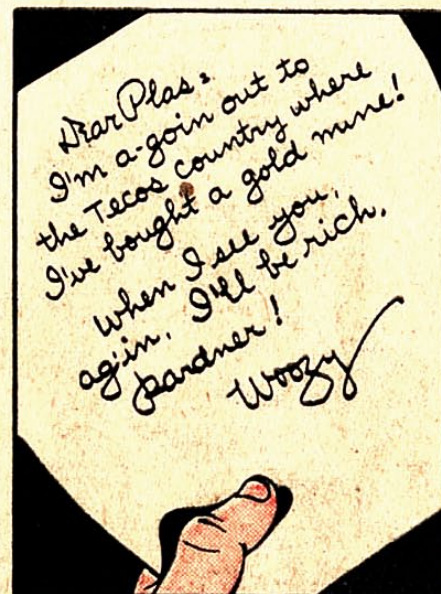 Dear Plas:
I'm a-goin out to
the Tecos country where
I've bought a gold mine!
When I see you,
ag'in, I'll be rich,
pardner!
Woozy